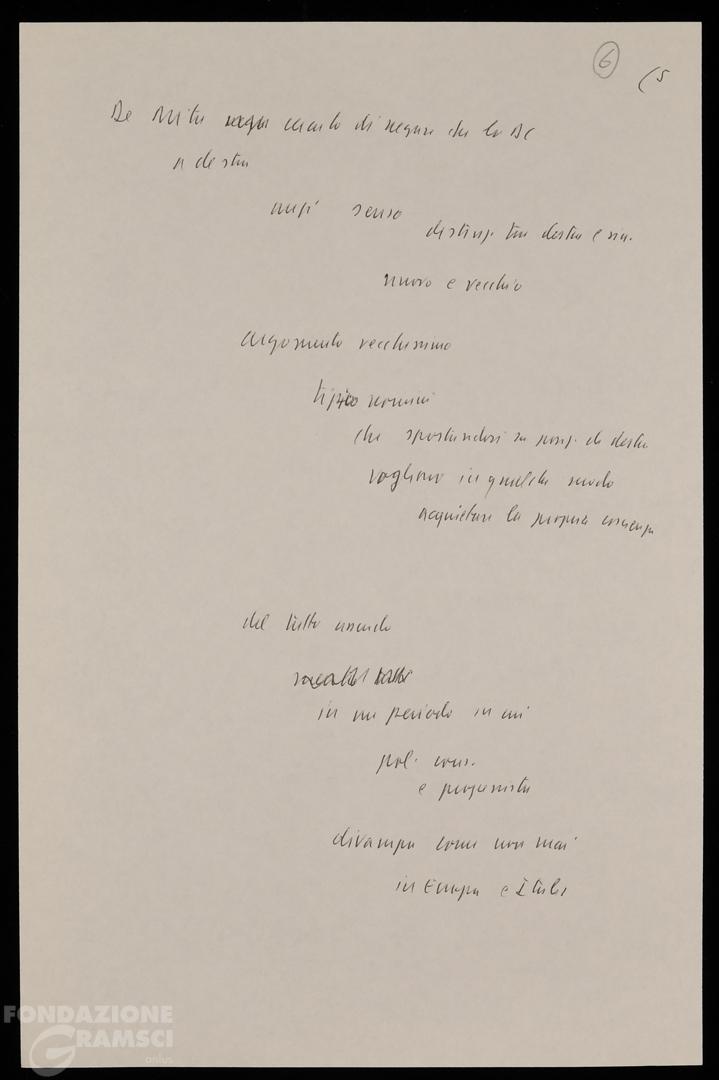 6
(5
De Mita cerca di negare che la DC
a destra
anzi senso
disting. tra destra e sin.
nuovo e vecchio
argomento vecchissimo
tipico uomini
che spostandosi su posiz. di destra
vogliono in qualche modo
acquietare la propria coscienza
del tutto assurdo
in un periodo in cui
pol. cons.
e progressista
divampa come non mai
in Europa e Italia
FONDAZIONE
GRAMSCI
onlus